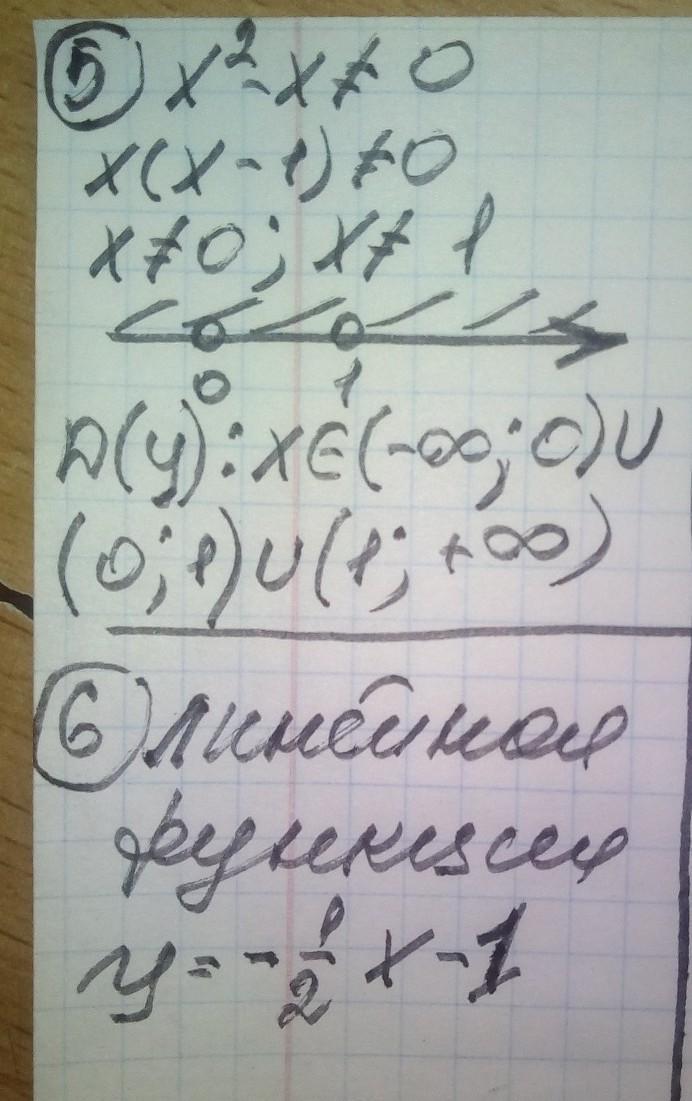 ⑤ x² - x ≠ 0
x(x - 1) ≠ 0
x ≠ 0; x ≠ 1
0 1
D(y): x ∈ (-∞; 0) ∪
(0; 1) ∪ (1; +∞)
⑥ линейная
функция
y = -1/2 x - 1